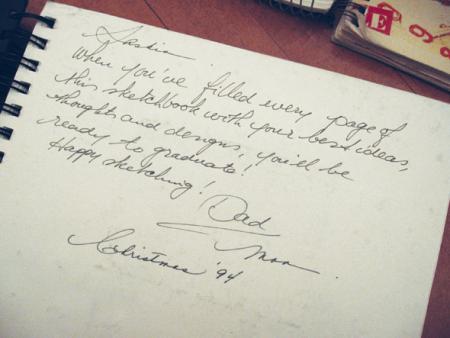 Saskia
When you've filled every page of
this sketchbook with your best ideas,
thoughts and designs, you'll be
ready to graduate!
Happy sketching!
Dad
Mom
Christmas '94
E